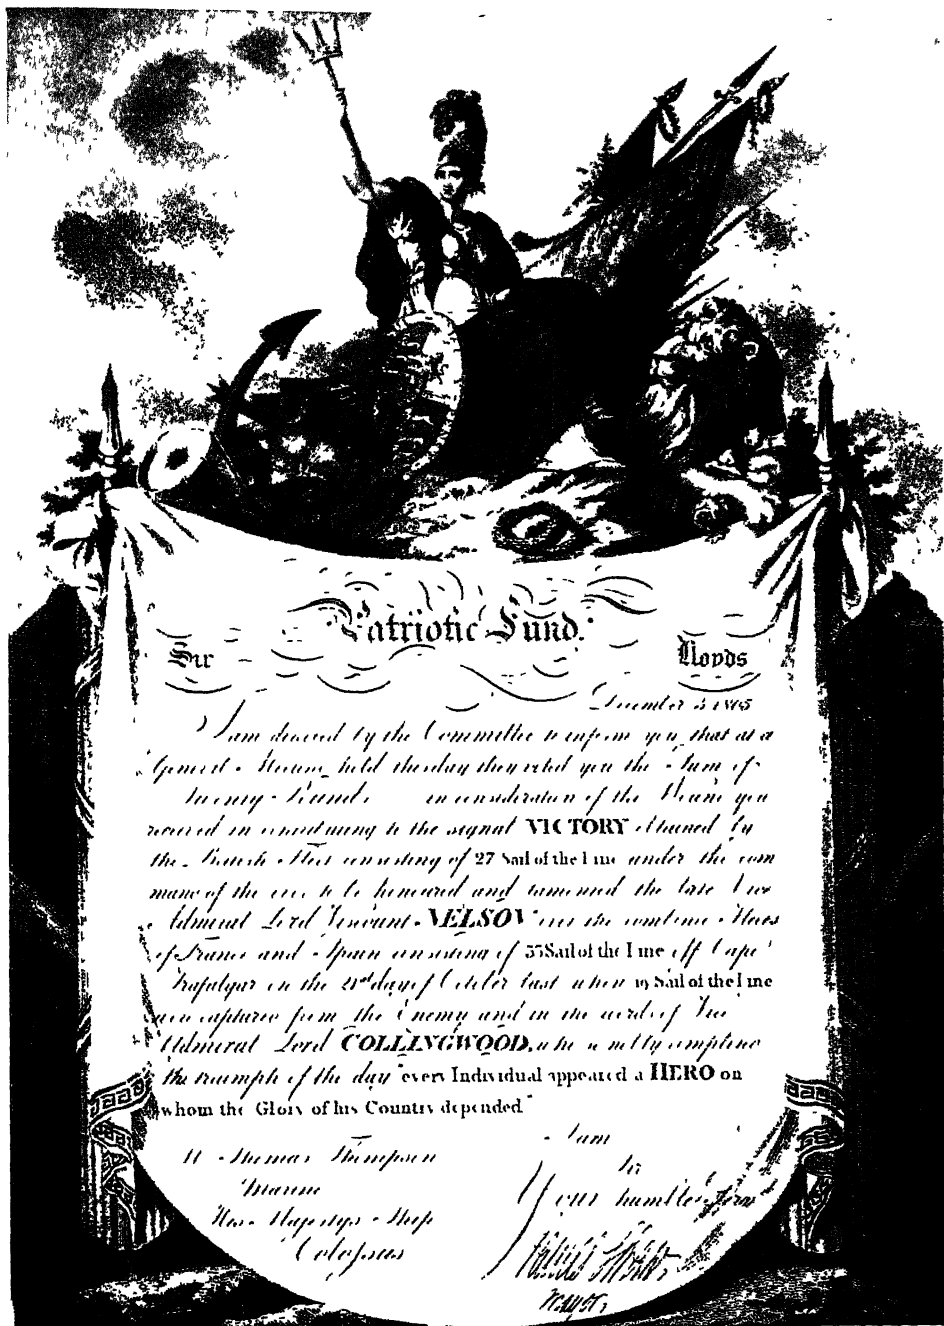 Patriotic Fund.
Sir Lloyds
December 3 1805
I am directed by the Committee to inform you, that at a
General Meeting held this day they voted you the Sum of
Twenty Pounds in consideration of the Wound you
received in contributing to the signal VICTORY obtained by
the British Fleet consisting of 27 Sail of the Line under the com
mand of the ever to be honoured and lamented the late Vice
Admiral Lord Viscount NELSON over the combined Fleets
of France and Spain consisting of 33 Sail of the Line off Cape
Trafalgar on the 21st day of October last when 19 Sail of the Line
were captured from the Enemy and in the words of Vice
Admiral Lord COLLINGWOOD, who so nobly completed
the triumph of the day "every Individual appeared a HERO on
whom the Glory of his Country depended"
I am
Thomas Thompson Sir
Marine Your humble Serv
His Majestys Ship
Colossus